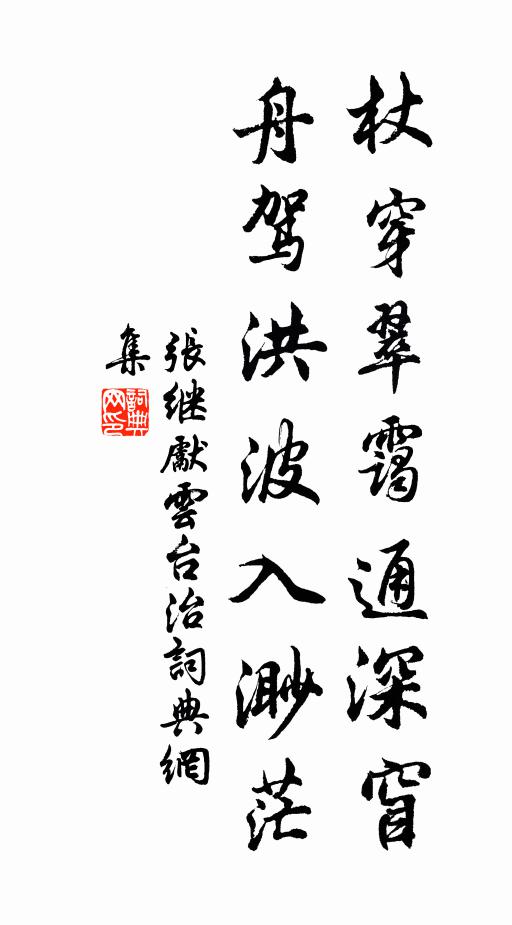 杖穿翠靄通深窅
舟驾洪波入渺茫
張继獻雲台治詞典網
集
詞典
网印